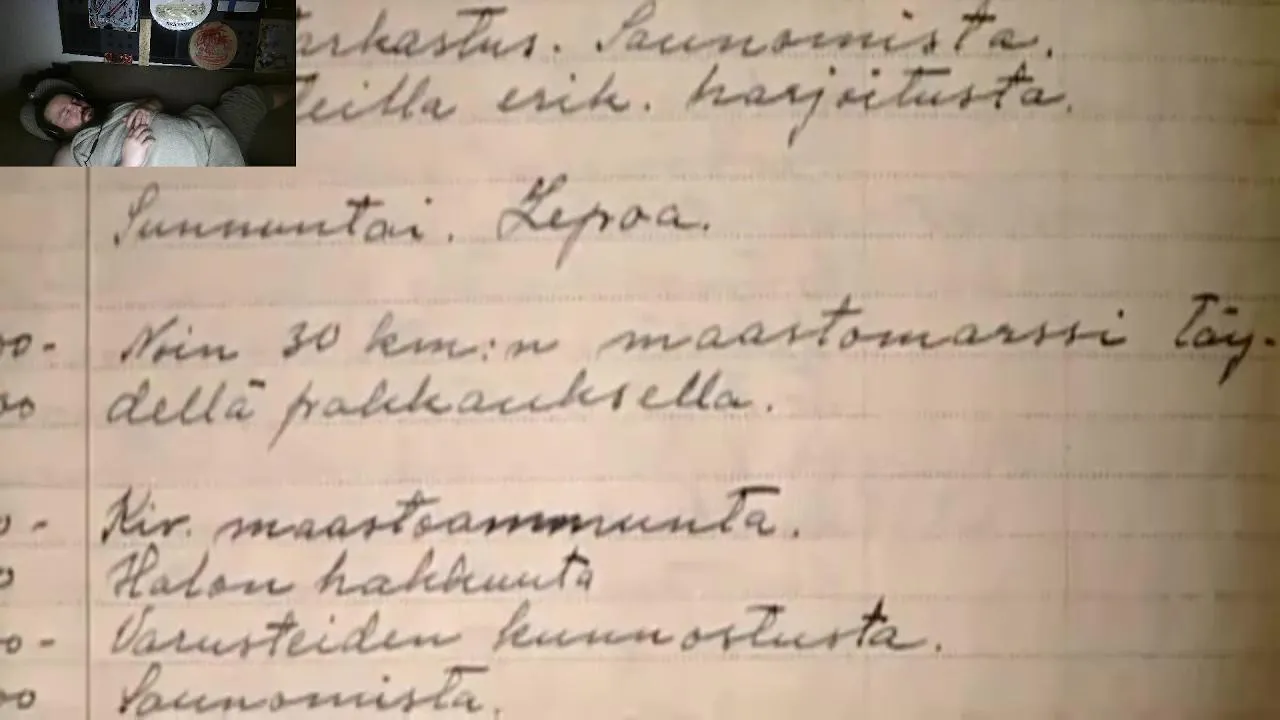 arkastus. Saunomista.
teilla erik. harjoitusta.
Sunnuntai. Lepoa.
00- Noin 30 km:n maastomarssi täy-
00 dellä pakkauksella.
0- Kiv. maastoammunta.
0 Halon hakkuuta
00- Varusteiden kunnostusta.
00 Saunomista.